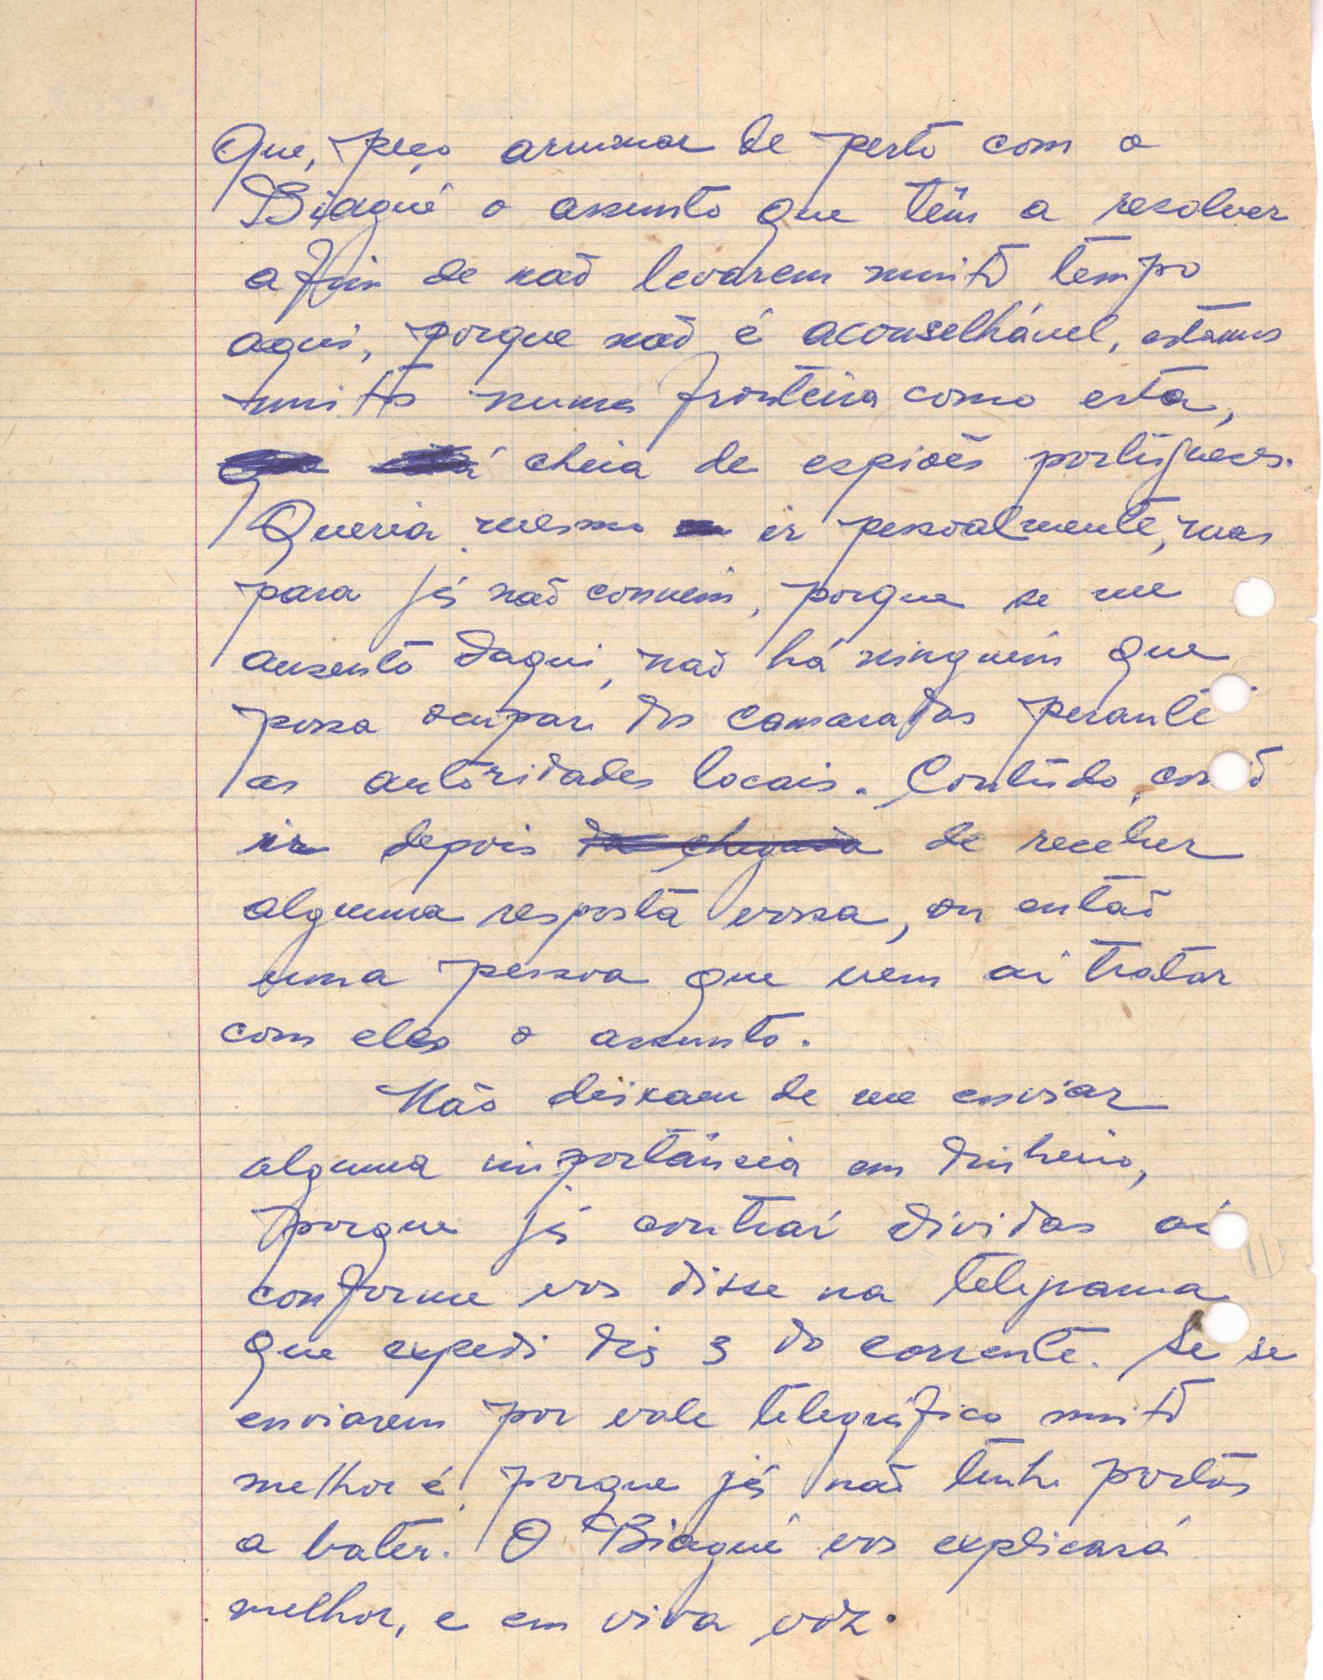 Que, peço arrumar de perto com o
Biagué o assunto que têm a resolver
afim de não levarem muito tempo
aqui, porque não é aconselhável, estamos
muitos numa fronteira como esta,
cheia de espiões portugueses.
Queria mesmo ir pessoalmente, mas
para já não convém, porque se me
ausento daqui, não há ninguém que
possa ocupar dos camaradas perante
as autoridades locais. Contudo, conto
ir depois de receber
alguma resposta vossa, ou então
uma pessoa que vem aí tratar
com eles o assunto.
Não deixam de me enviar
alguma importância em dinheiro,
porque já contraí dividas aí
conforme vos disse na telegrama
que expedi dia 3 do corrente. Se se
enviarem por vale telegráfico muito
melhor é, porque já não tenho portas
a bater. O Biagué vos explicará
melhor, e em viva voz.